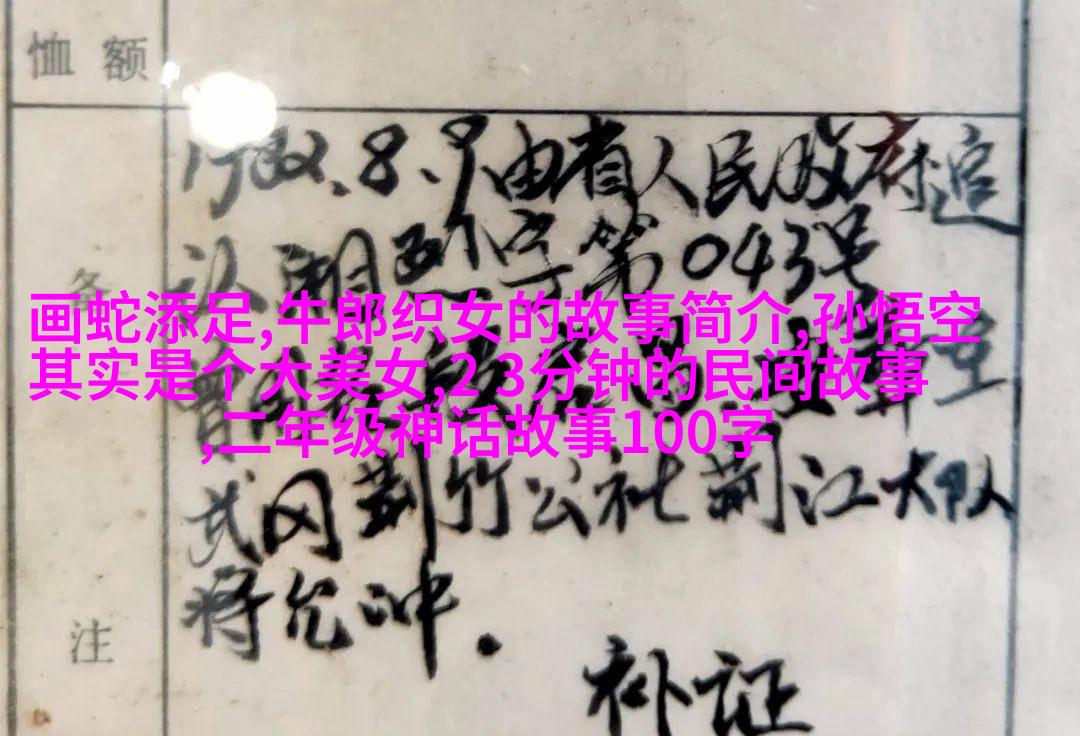 恤额
1982.8.9由省人民政府追
认 湘烈字第043号
备
画蛇添足,牛郎织女的故事简介,孙悟空
其实是个大美女,2-3分钟的民间故事
,二年级神话故事100字
武冈荆竹公社荆江大队
蒋允冲.
注
补证